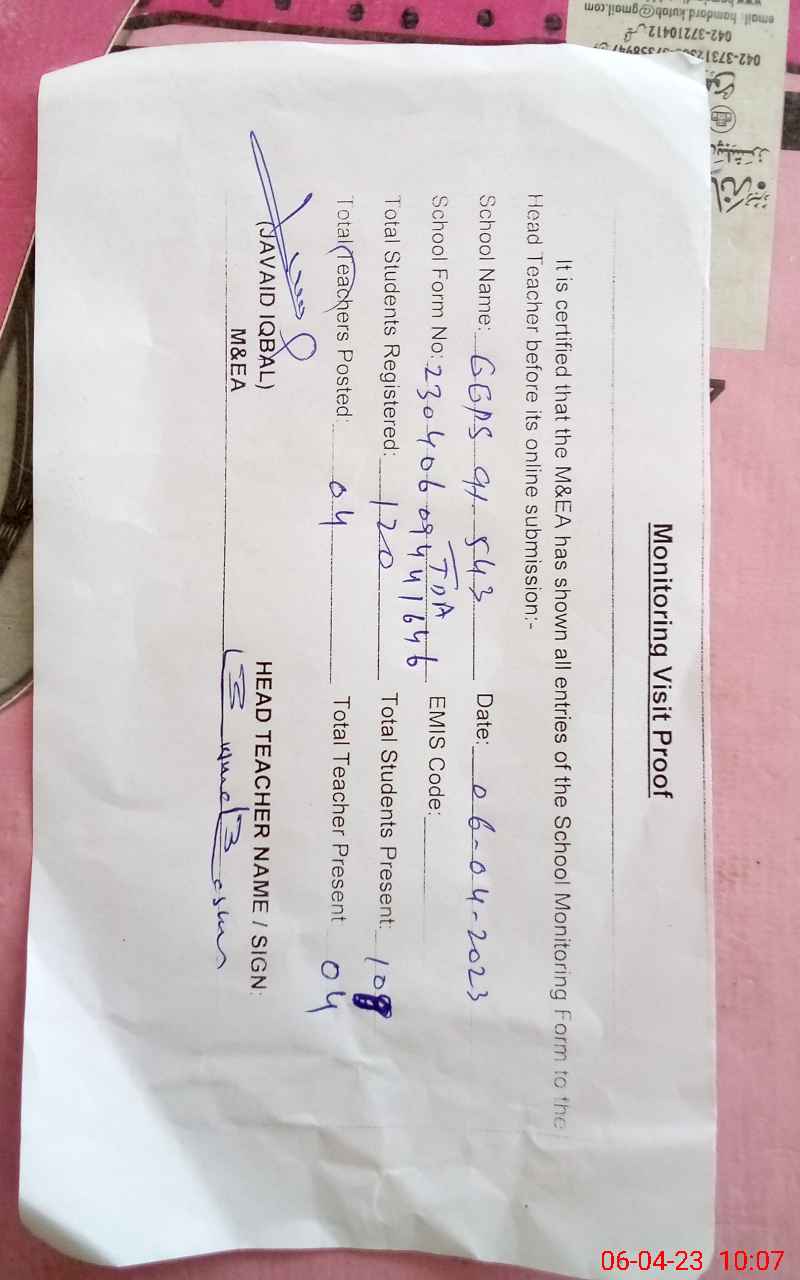 Monitoring Visit Proof
It is certified that the M&EA has shown all entries of the School Monitoring Form to the
Head Teacher before its online submission:-
School Name: GGPS 91 543 Date: 06-04-2023
TDA
School Form No: 230406094441646 EMIS Code:
Total Students Registered: 120 Total Students Present: 108
Total Teachers Posted: 04 Total Teacher Present 04
(JAVAID IQBAL)
M&EA
HEAD TEACHER NAME / SIGN:
042-37210412
06-04-23 10:07